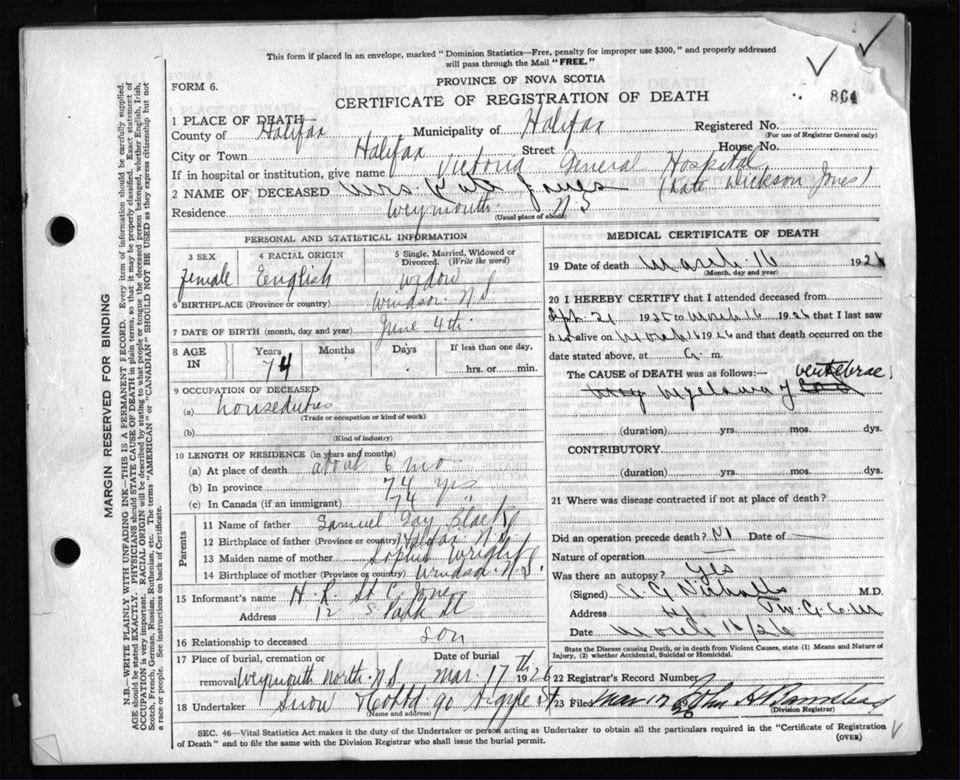 This form if placed in an envelope, marked "Dominion Statistics—Free, penalty for improper use $300," and properly addressed
will pass through the Mail "FREE."
FORM 6.
PROVINCE OF NOVA SCOTIA
CERTIFICATE OF REGISTRATION OF DEATH
864
1 PLACE OF DEATH
County of Halifax Municipality of Halifax Registered No.
(For use of Registrar General only)
City or Town Halifax Street House No.
If in hospital or institution, give name Victoria General Hospital
2 NAME OF DECEASED Mrs. Kate Jones (Kate Dickson Jones)
Residence Weymouth N.S
(Usual place of abode)
PERSONAL AND STATISTICAL INFORMATION
3 SEX
female
4 RACIAL ORIGIN
English
5 Single, Married, Widowed or
Divorced. (Write the word)
Widow
6 BIRTHPLACE (Province or country) Windsor N.S
7 DATE OF BIRTH (month, day and year) June 4th
8 AGE
IN
Years
74
Months
Days
If less than one day,
hrs. or min.
9 OCCUPATION OF DECEASED
(a) houseduties
(Trade or occupation or kind of work)
(b)
(Kind of industry)
10 LENGTH OF RESIDENCE (in years and months)
(a) At place of death about 6 mo
(b) In province 74 yrs
(c) In Canada (if an immigrant) 74 "
Parents
11 Name of father Samuel Gay Black
12 Birthplace of father (Province or country) Halifax N.S
13 Maiden name of mother Sophia Wright
14 Birthplace of mother (Province or country) Windsor N.S.
15 Informant's name H. R. St C Jones
Address 12 S Park St
16 Relationship to deceased son
17 Place of burial, cremation or
removal Weymouth North N.S
Date of burial
Mar. 17th 1926
18 Undertaker Snow 90 Argyle St
(Name and address)
MEDICAL CERTIFICATE OF DEATH
19 Date of death March 16 1926
(Month, day and year)
20 I HEREBY CERTIFY that I attended deceased from
Sept. 21 1925 to March 16 1926 that I last saw
h alive on March 16 1926 and that death occurred on the
date stated above, at a. m.
The CAUSE OF DEATH was as follows:— vertebrae
(duration) yrs. mos. dys.
CONTRIBUTORY
(duration) yrs. mos. dys.
21 Where was disease contracted if not at place of death?
Did an operation precede death? Date of
Nature of operation
Was there an autopsy? Yes
(Signed) A G Nicholls M.D.
Address
Date March 16/26
State the Disease causing Death, or in death from Violent Causes, state (1) Means and Nature of
Injury, (2) whether Accidental, Suicidal or Homicidal.
22 Registrar's Record Number
23 Filed Mar 17 26 John A
(Division Registrar)
SEC. 46—Vital Statistics Act makes it the duty of the Undertaker or person acting as Undertaker to obtain all the particulars required in the "Certificate of Registration
of Death" and to file the same with the Division Registrar who shall issue the burial permit.
(OVER)
MARGIN RESERVED FOR BINDING
N.B.—WRITE PLAINLY WITH UNFADING INK—THIS IS A PERMANENT RECORD. Every item of information should be carefully supplied.
AGE should be stated EXACTLY. PHYSICIANS should STATE CAUSE OF DEATH in plain terms, so that it may be properly classified. Exact statement of
OCCUPATION is very important. RACIAL ORIGIN will be described by stating to what people or tongue the deceased person belonged, whether English, Irish,
Scotch, French, German, Russian, Ruthenian, etc. The terms "AMERICAN" or "CANADIAN" SHOULD NOT BE USED as they express citizenship but not
a race or people. See instructions on back of Certificate.